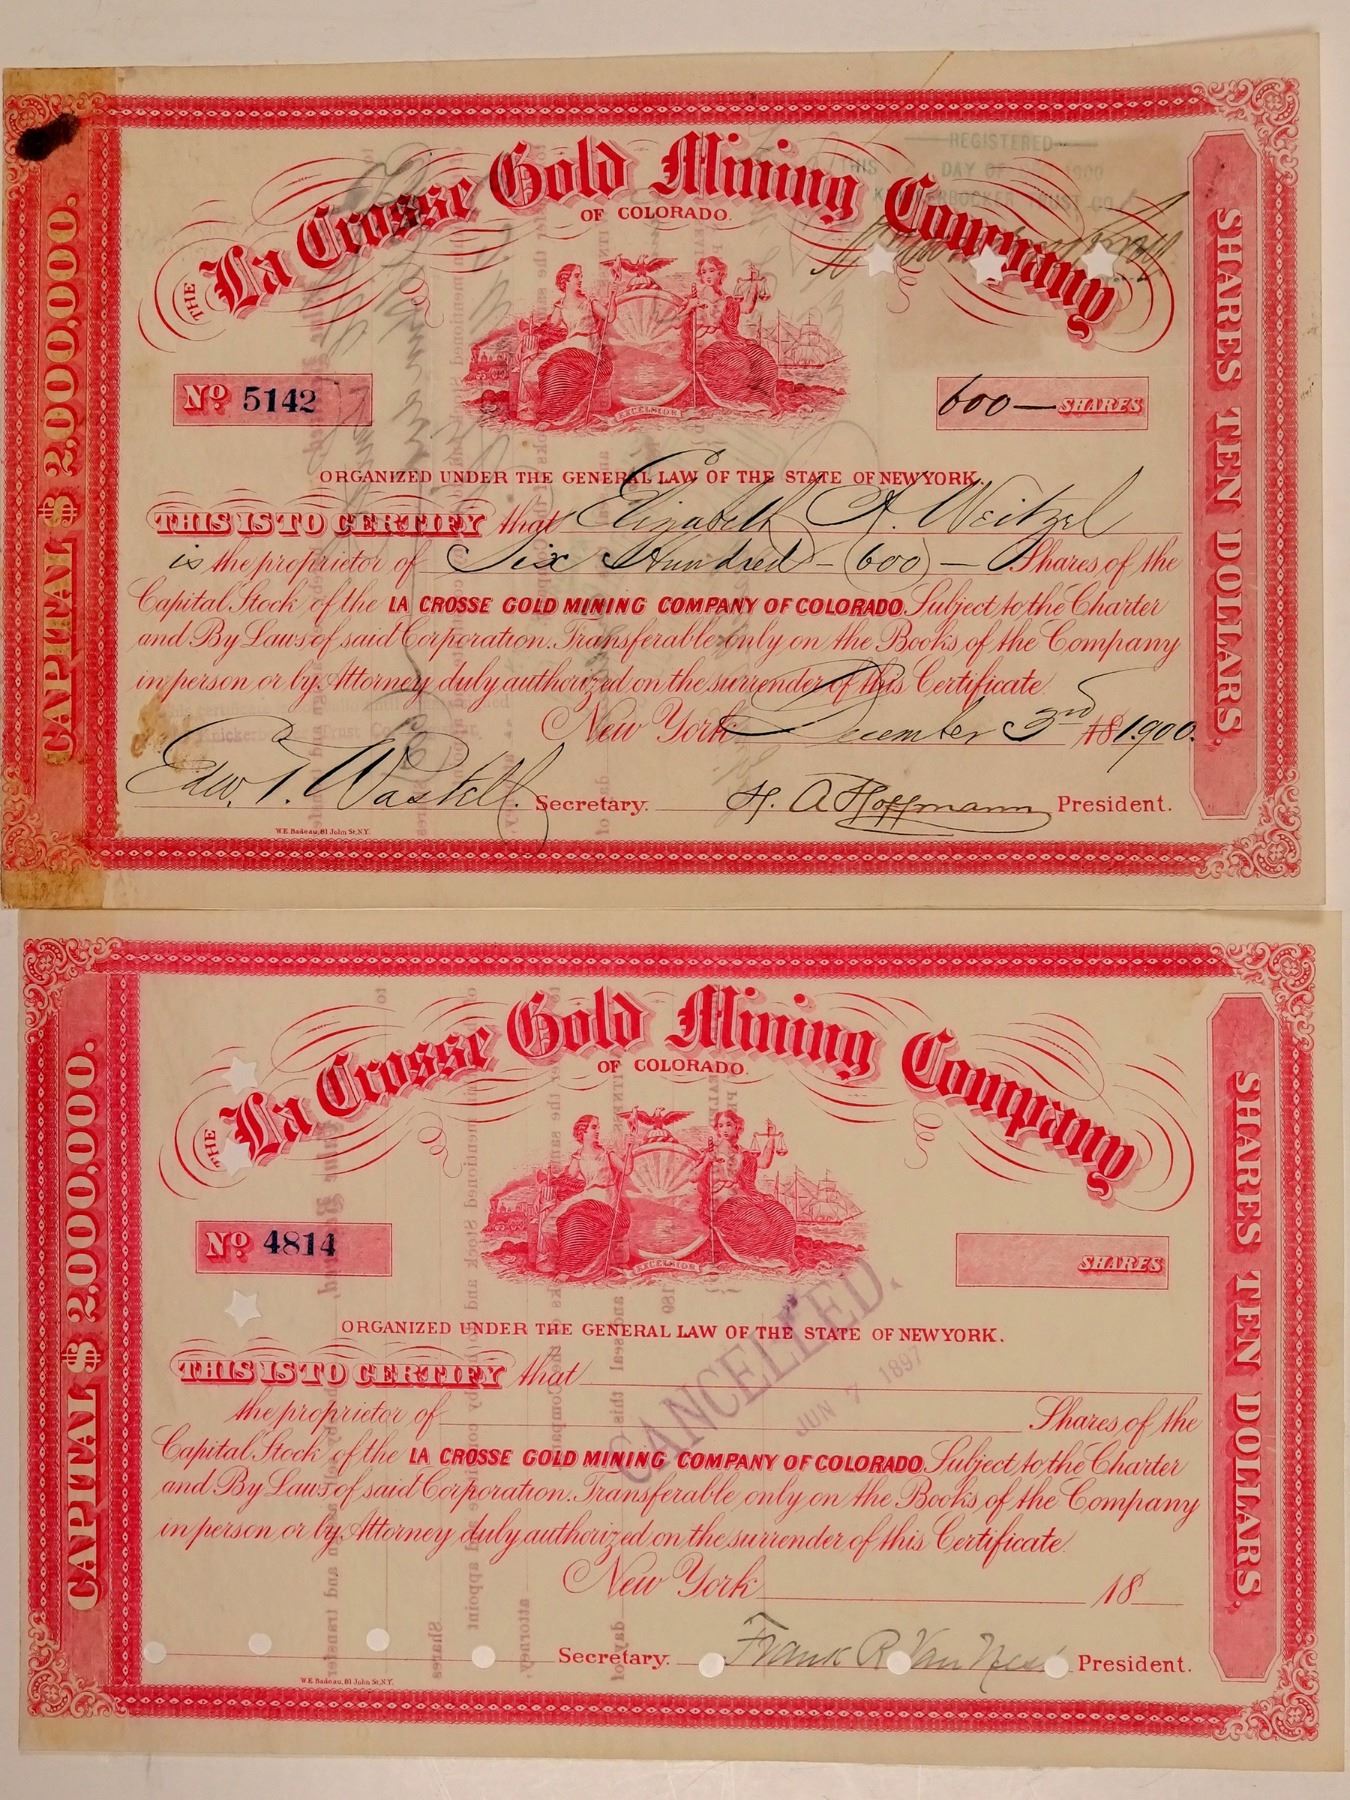 REGISTERED
THIS DAY OF 1900
THE La Crosse Gold Mining Company
OF COLORADO.
CAPITAL $ 2,000,000.
SHARES TEN DOLLARS.
EXCELSIOR
No 5142
600— SHARES
ORGANIZED UNDER THE GENERAL LAW OF THE STATE OF NEW YORK.
THIS IS TO CERTIFY that Elizabeth A. Weitzel
is the proprietor of Six Hundred - (600) — Shares of the
Capital Stock of the LA CROSSE GOLD MINING COMPANY OF COLORADO. Subject to the Charter
and By Laws of said Corporation. Transferable only on the Books of the Company
in person or by Attorney duly authorized on the surrender of this Certificate.
New York December 3rd 18 1900.
Edw. T. Wastell. Secretary. H. A. Hoffmann President.
W.E. Badeau, 81 John St, N.Y.
THE La Crosse Gold Mining Company
OF COLORADO.
CAPITAL $ 2,000,000.
SHARES TEN DOLLARS.
EXCELSIOR
No 4814
SHARES
CANCELLED.
JUN 7 1897
ORGANIZED UNDER THE GENERAL LAW OF THE STATE OF NEW YORK.
THIS IS TO CERTIFY that
the proprietor of Shares of the
Capital Stock of the LA CROSSE GOLD MINING COMPANY OF COLORADO. Subject to the Charter
and By Laws of said Corporation. Transferable only on the Books of the Company
in person or by Attorney duly authorized on the surrender of this Certificate.
New York 18
Secretary. Frank R. Van Ness President.
W.E. Badeau, 81 John St, N.Y.